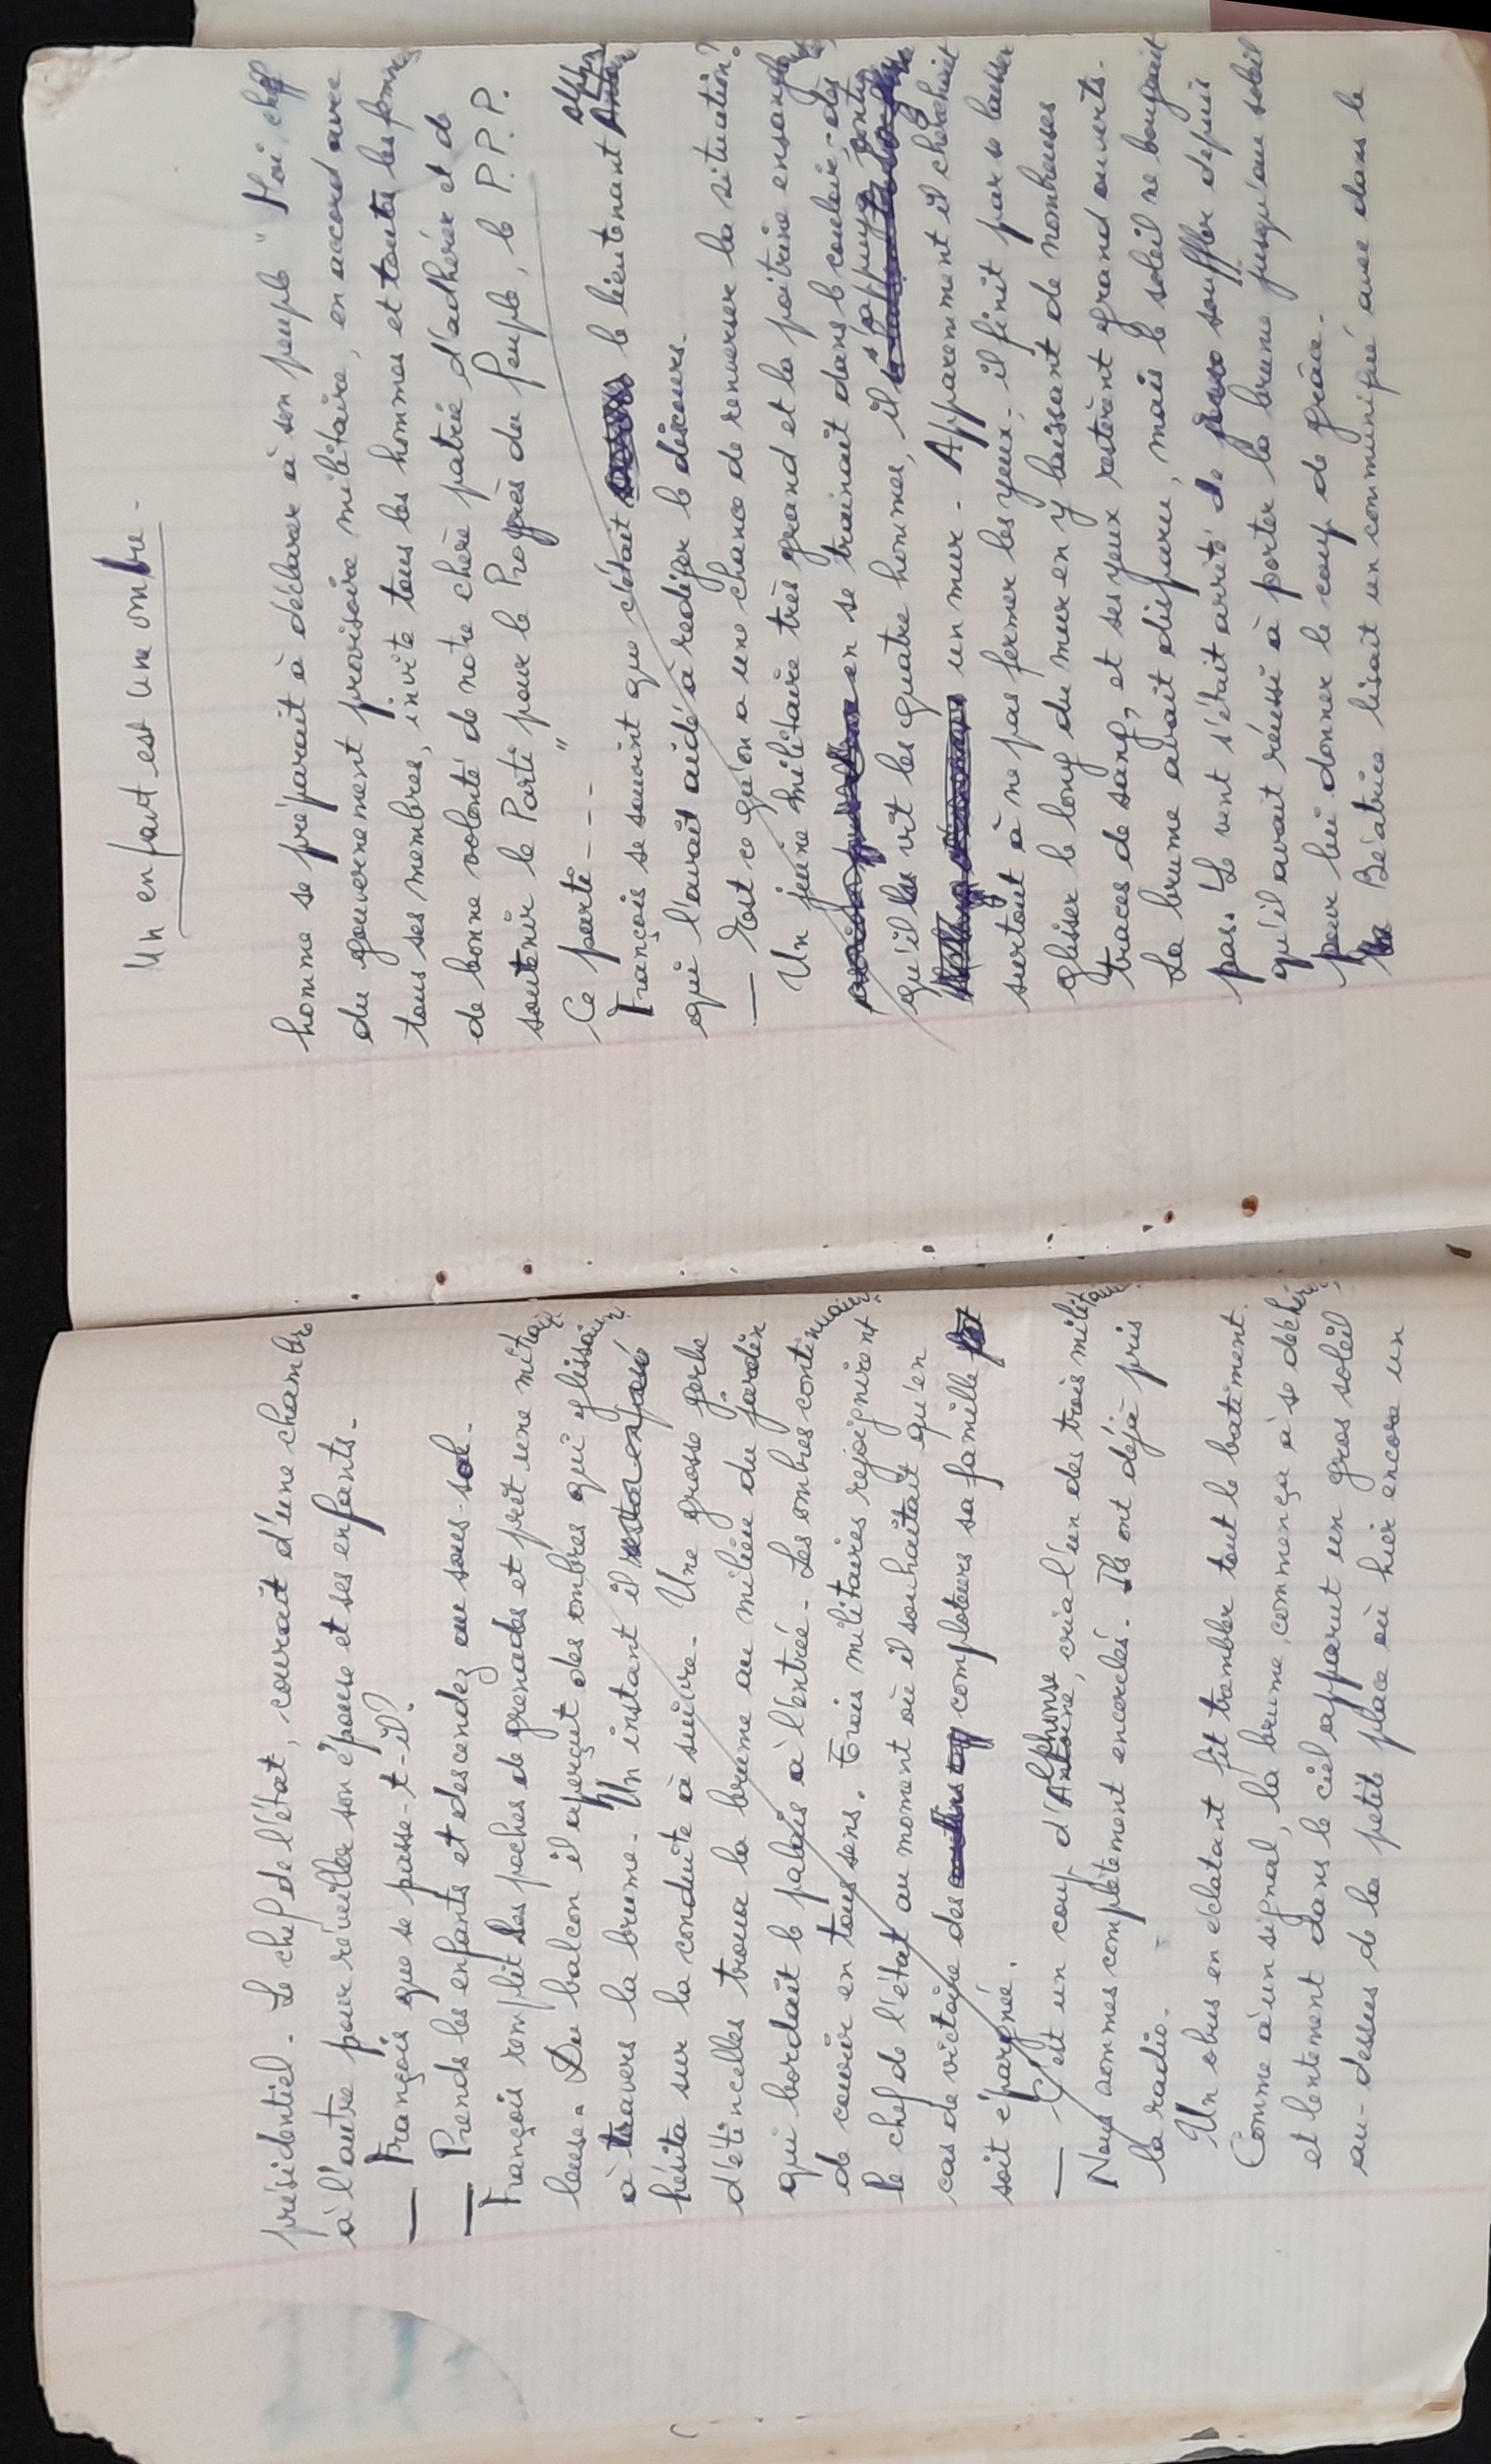 présidentiel. Le chef de l'état, courait d'une chambre
à l'autre pour réveiller son épouse et ses enfants.
— François que se passe-t-il?
— Prends les enfants et descendez au sous-sol.
François remplit ses poches de grenades et prit une mitrail
leuse. Du balcon il aperçut des ombres qui glissaient
à travers la brume. Un instant il
hésita sur la conduite à suivre. Une grosse gerbe
d'étincelles troua la brume au milieu du jardin
qui bordait le palais à l'entrée. Les ombres continuaient
de courir en tous sens. Trois militaires rejoignirent
le chef de l'état au moment où il souhaitait qu'en
cas de victoire des comploteurs sa famille
soit épargnée.
— C'est un coup d'Alphonse, cria l'un des trois militaires
Nous sommes complètement encerclés. Ils ont déjà pris
la radio.
Un obus en éclatant fit trembler tout le batiment.
Comme à un signal, la brume commença à se déchirer
et lentement dans le ciel apparut un gros soleil
au-dessus de la petite place où hier encore un
Un enfant est une ombre.
homme se préparait à déclarer à son peuple "Moi, chef
du gouvernement provisoire militaire, en accord avec
tous ses membres, invite tous les hommes et toutes les femmes
de bonne volonté de notre chère patrie d'adhérer et de
soutenir le Parti pour le Progrès du Peuple, le P.P.P.
Ce parti - - - "
François se souvint que c'était le lieutenant Alphonse
qui l'avait aidé à rediger le discours.
— Est ce qu'on a une chance de renverser la situation?
Un jeune militaire très grand et la poitrine ensanglantée
en se trainait dans le couloir, dès
qu'il vit les quatre hommes, il s'appuya contre
un mur. Apparemment il cherchait
surtout à ne pas fermer les yeux, il finit par se laisser
glisser le long du mur en y laissant de nombreuses
traces de sang, et ses yeux restèrent grand ouverts.
La brume avait disparu, mais le soleil ne bougeait
pas. Le vent s'était arrêté de souffler depuis
qu'il avait réussi à porter la brume jusqu'au soleil
pour lui donner le coup de grâce.
Béatrice lisait un communiqué avec dans la